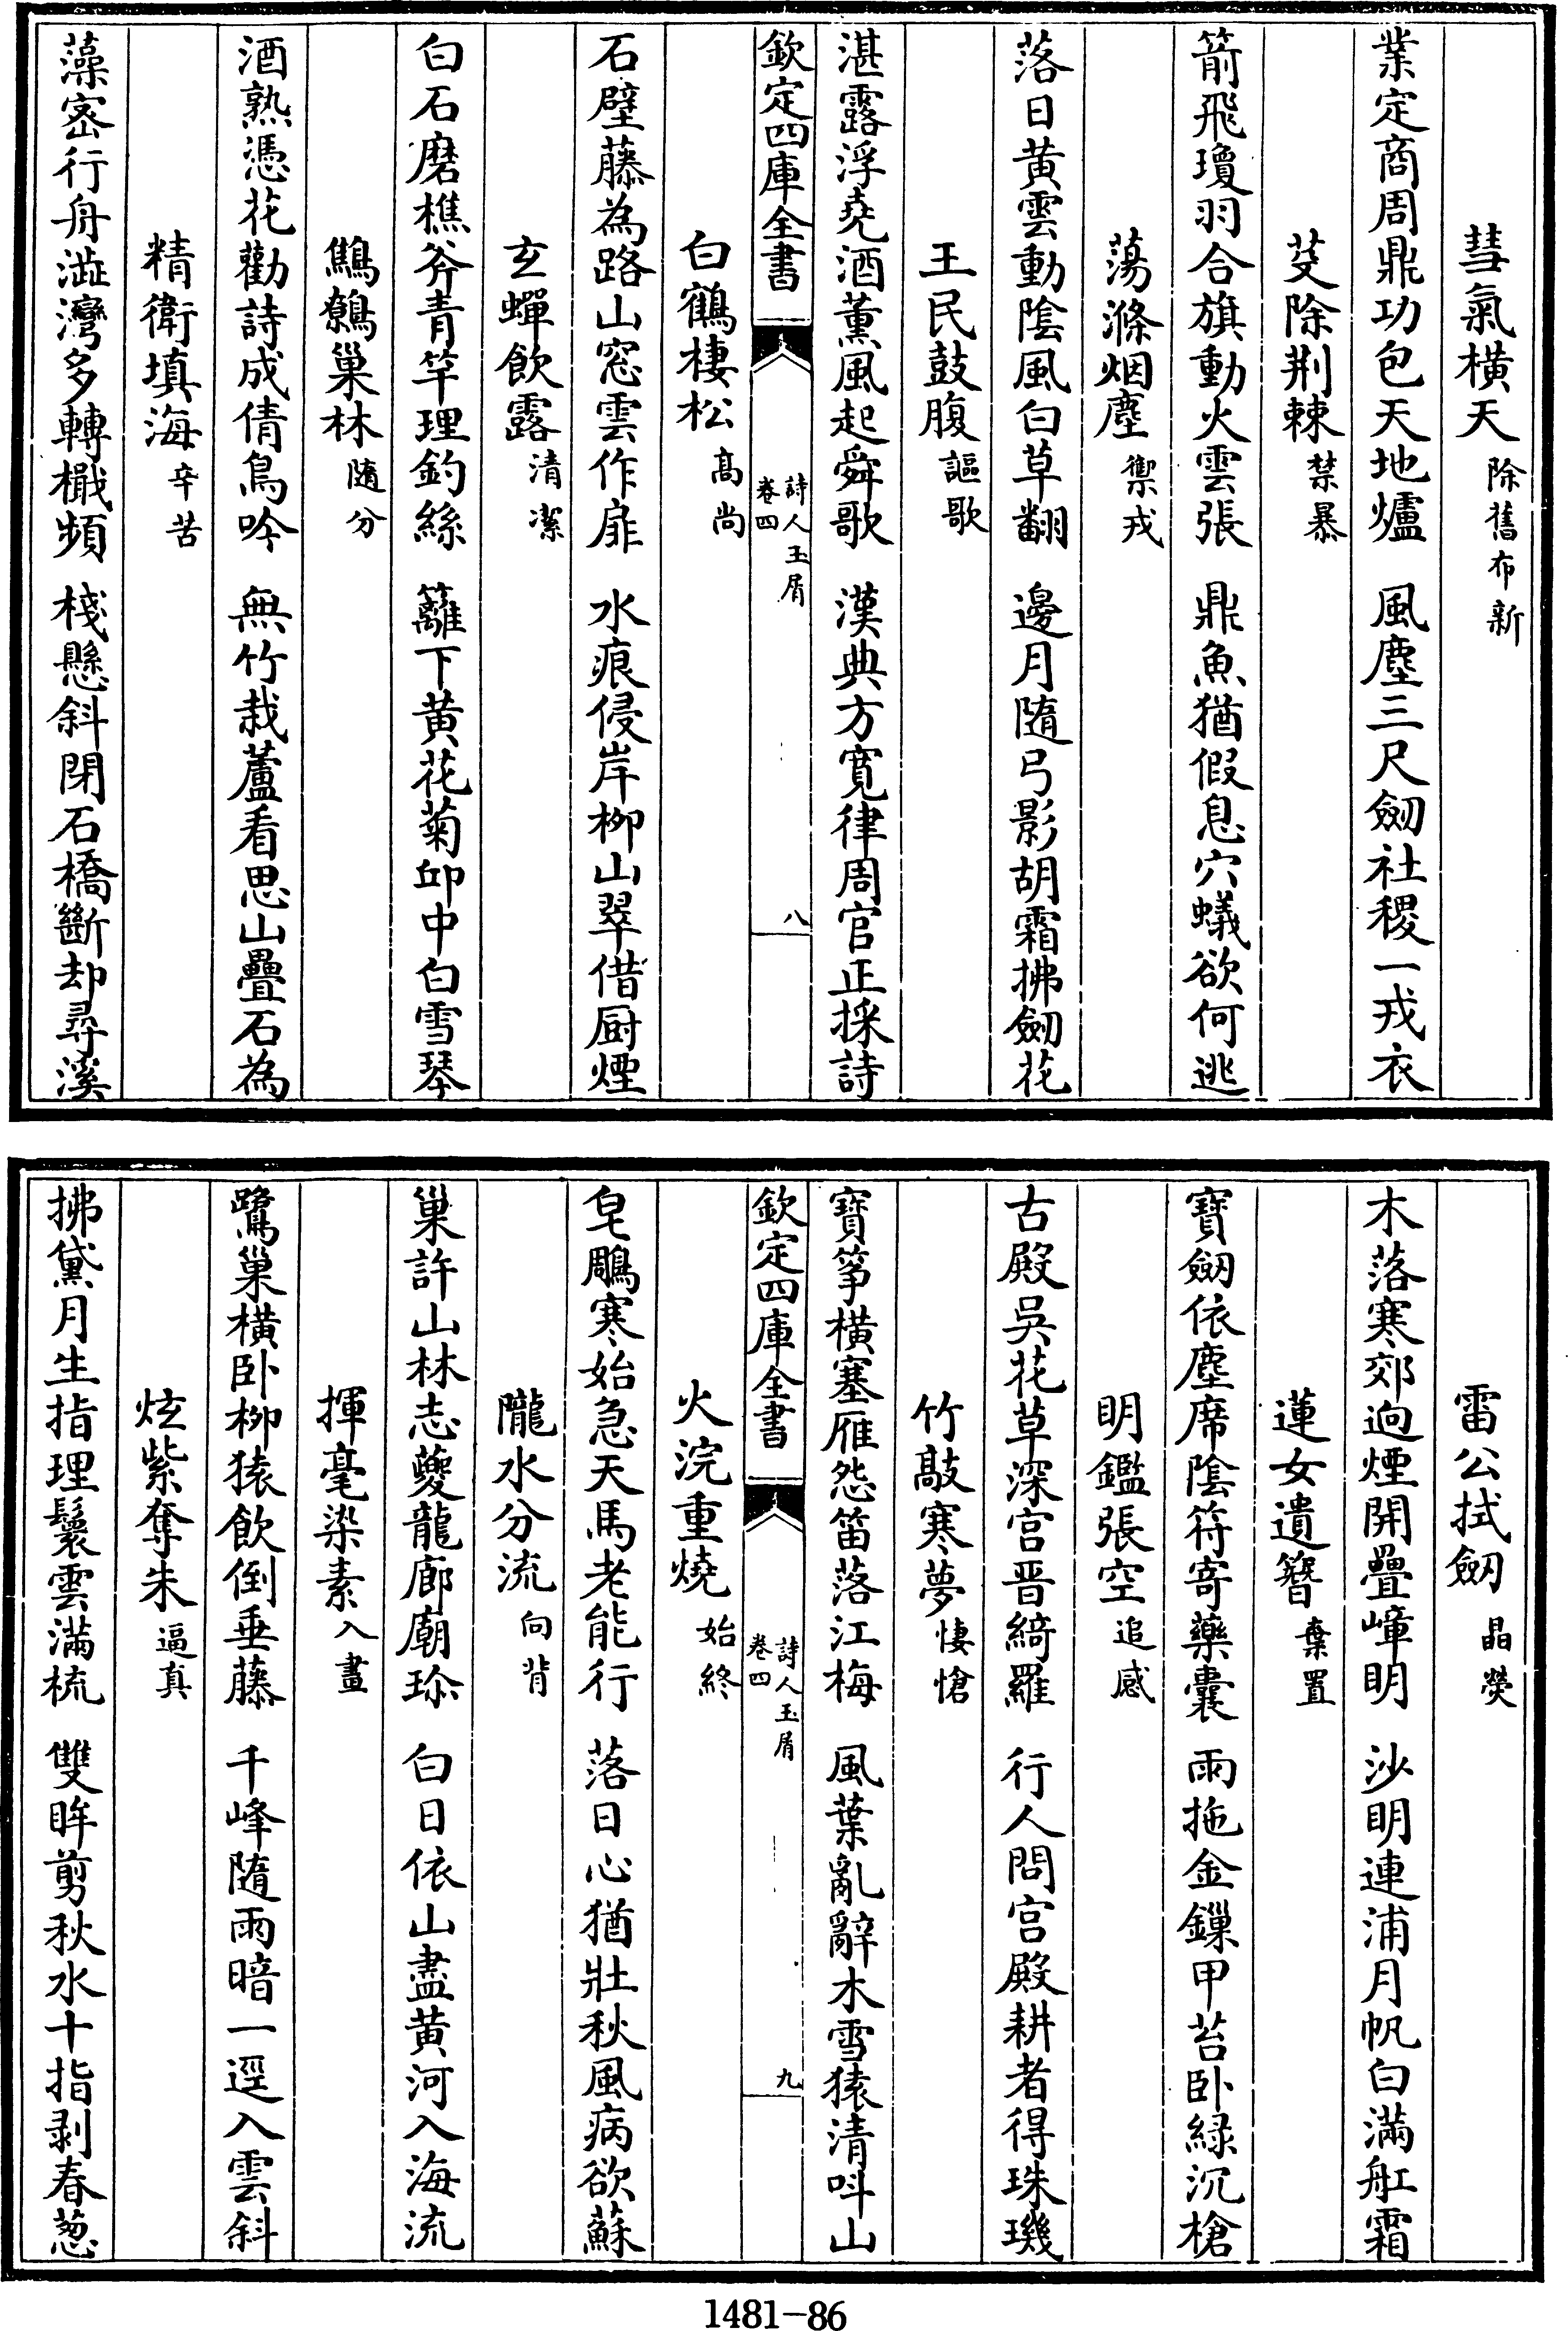 彗氣横天 除舊布新
業定商周鼎功包天地爐 風塵三尺劒社稷一戎衣
芟除荆棘 禁暴
箭飛瓊羽合旗動火雲張 鼎魚猶假息穴蟻欲何逃
蕩滌烟塵 禦戎
落日黄雲動陰風白草翻 邊月隨弓影胡霜拂劒花
王民鼓腹 謳歌
湛露浮堯酒薰風起舜歌 漢典方寛律周官正採詩
欽定四庫全書 詩人玉屑 卷四 八
白鶴棲松 高尚
石壁藤為路山窓雲作扉 水痕侵岸栁山翠借厨煙
玄蟬飲露 清潔
白石磨樵斧青竿理釣絲 籬下黄花菊邱中白雪琴
鷦鷯巢林 隨分
酒熟憑花勸詩成倩鳥吟 無竹栽蘆看思山疊石為
精衛填海 辛苦
藻密行舟澁灣多轉檝頻 棧懸斜閉石橋斷却尋溪
雷公拭劒 晶熒
木落寒郊逈煙開疊嶂明 沙明連浦月帆白滿舡霜
蓮女遺簪 棄置
寶劒依塵席陰符寄藥囊 雨拖金鏁甲苔卧緑沉槍
明鑑張空 追感
古殿吳花草深宫晋綺羅 行人問宫殿耕者得珠璣
竹敲寒夢 悽愴
寶筝横塞雁怨笛落江梅 風葉亂辭木雪猿清呌山
欽定四庫全書 詩人玉屑 卷四 九
火浣重燒 始終
皂鵰寒始急天馬老能行 落日心猶壯秋風病欲蘇
隴水分流 向背
巢許山林志夔龍廊廟珍 白日依山盡黄河入海流
揮毫染素 入畫
鷺巢横卧栁猿飲倒垂藤 千峰隨雨暗一逕入雲斜
炫紫奪朱 逼真
拂黛月生指理鬟雲滿梳 雙眸剪秋水十指剥春葱
1481-86